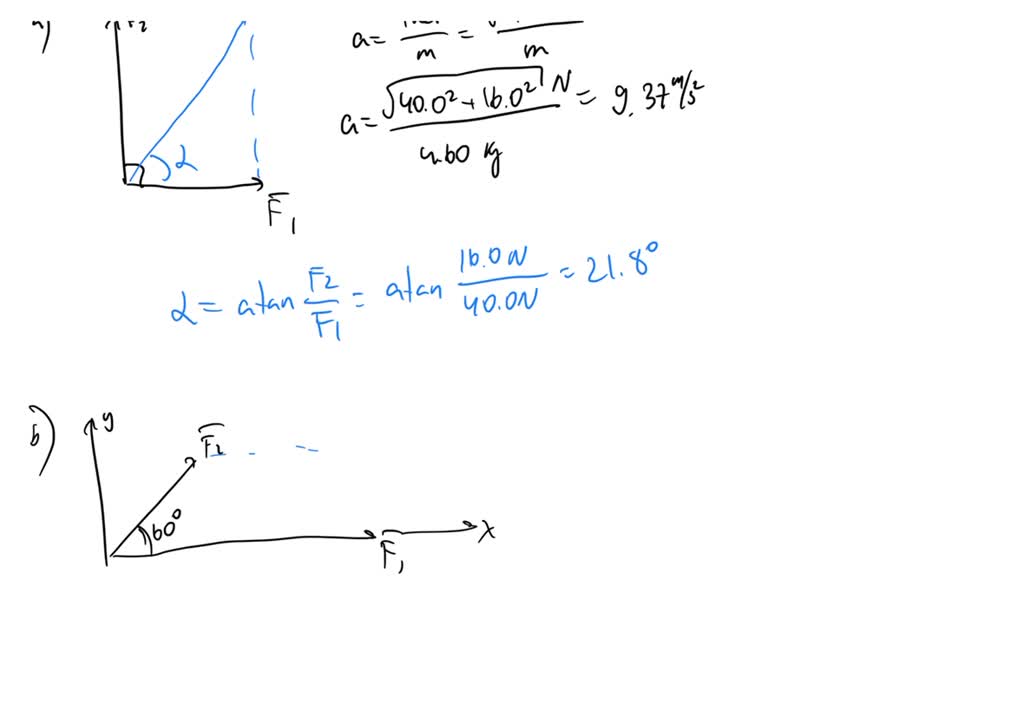 a) F₂
a = /m = √ /m
a = √(40.0² + 16.0²) N / 4.60 kg = 9.37 m/s²
α
F̅₁
α = atan F₂/F₁ = atan 16.0N/40.0N = 21.8°
b) y
F̅₂
60°
F̅₁ x